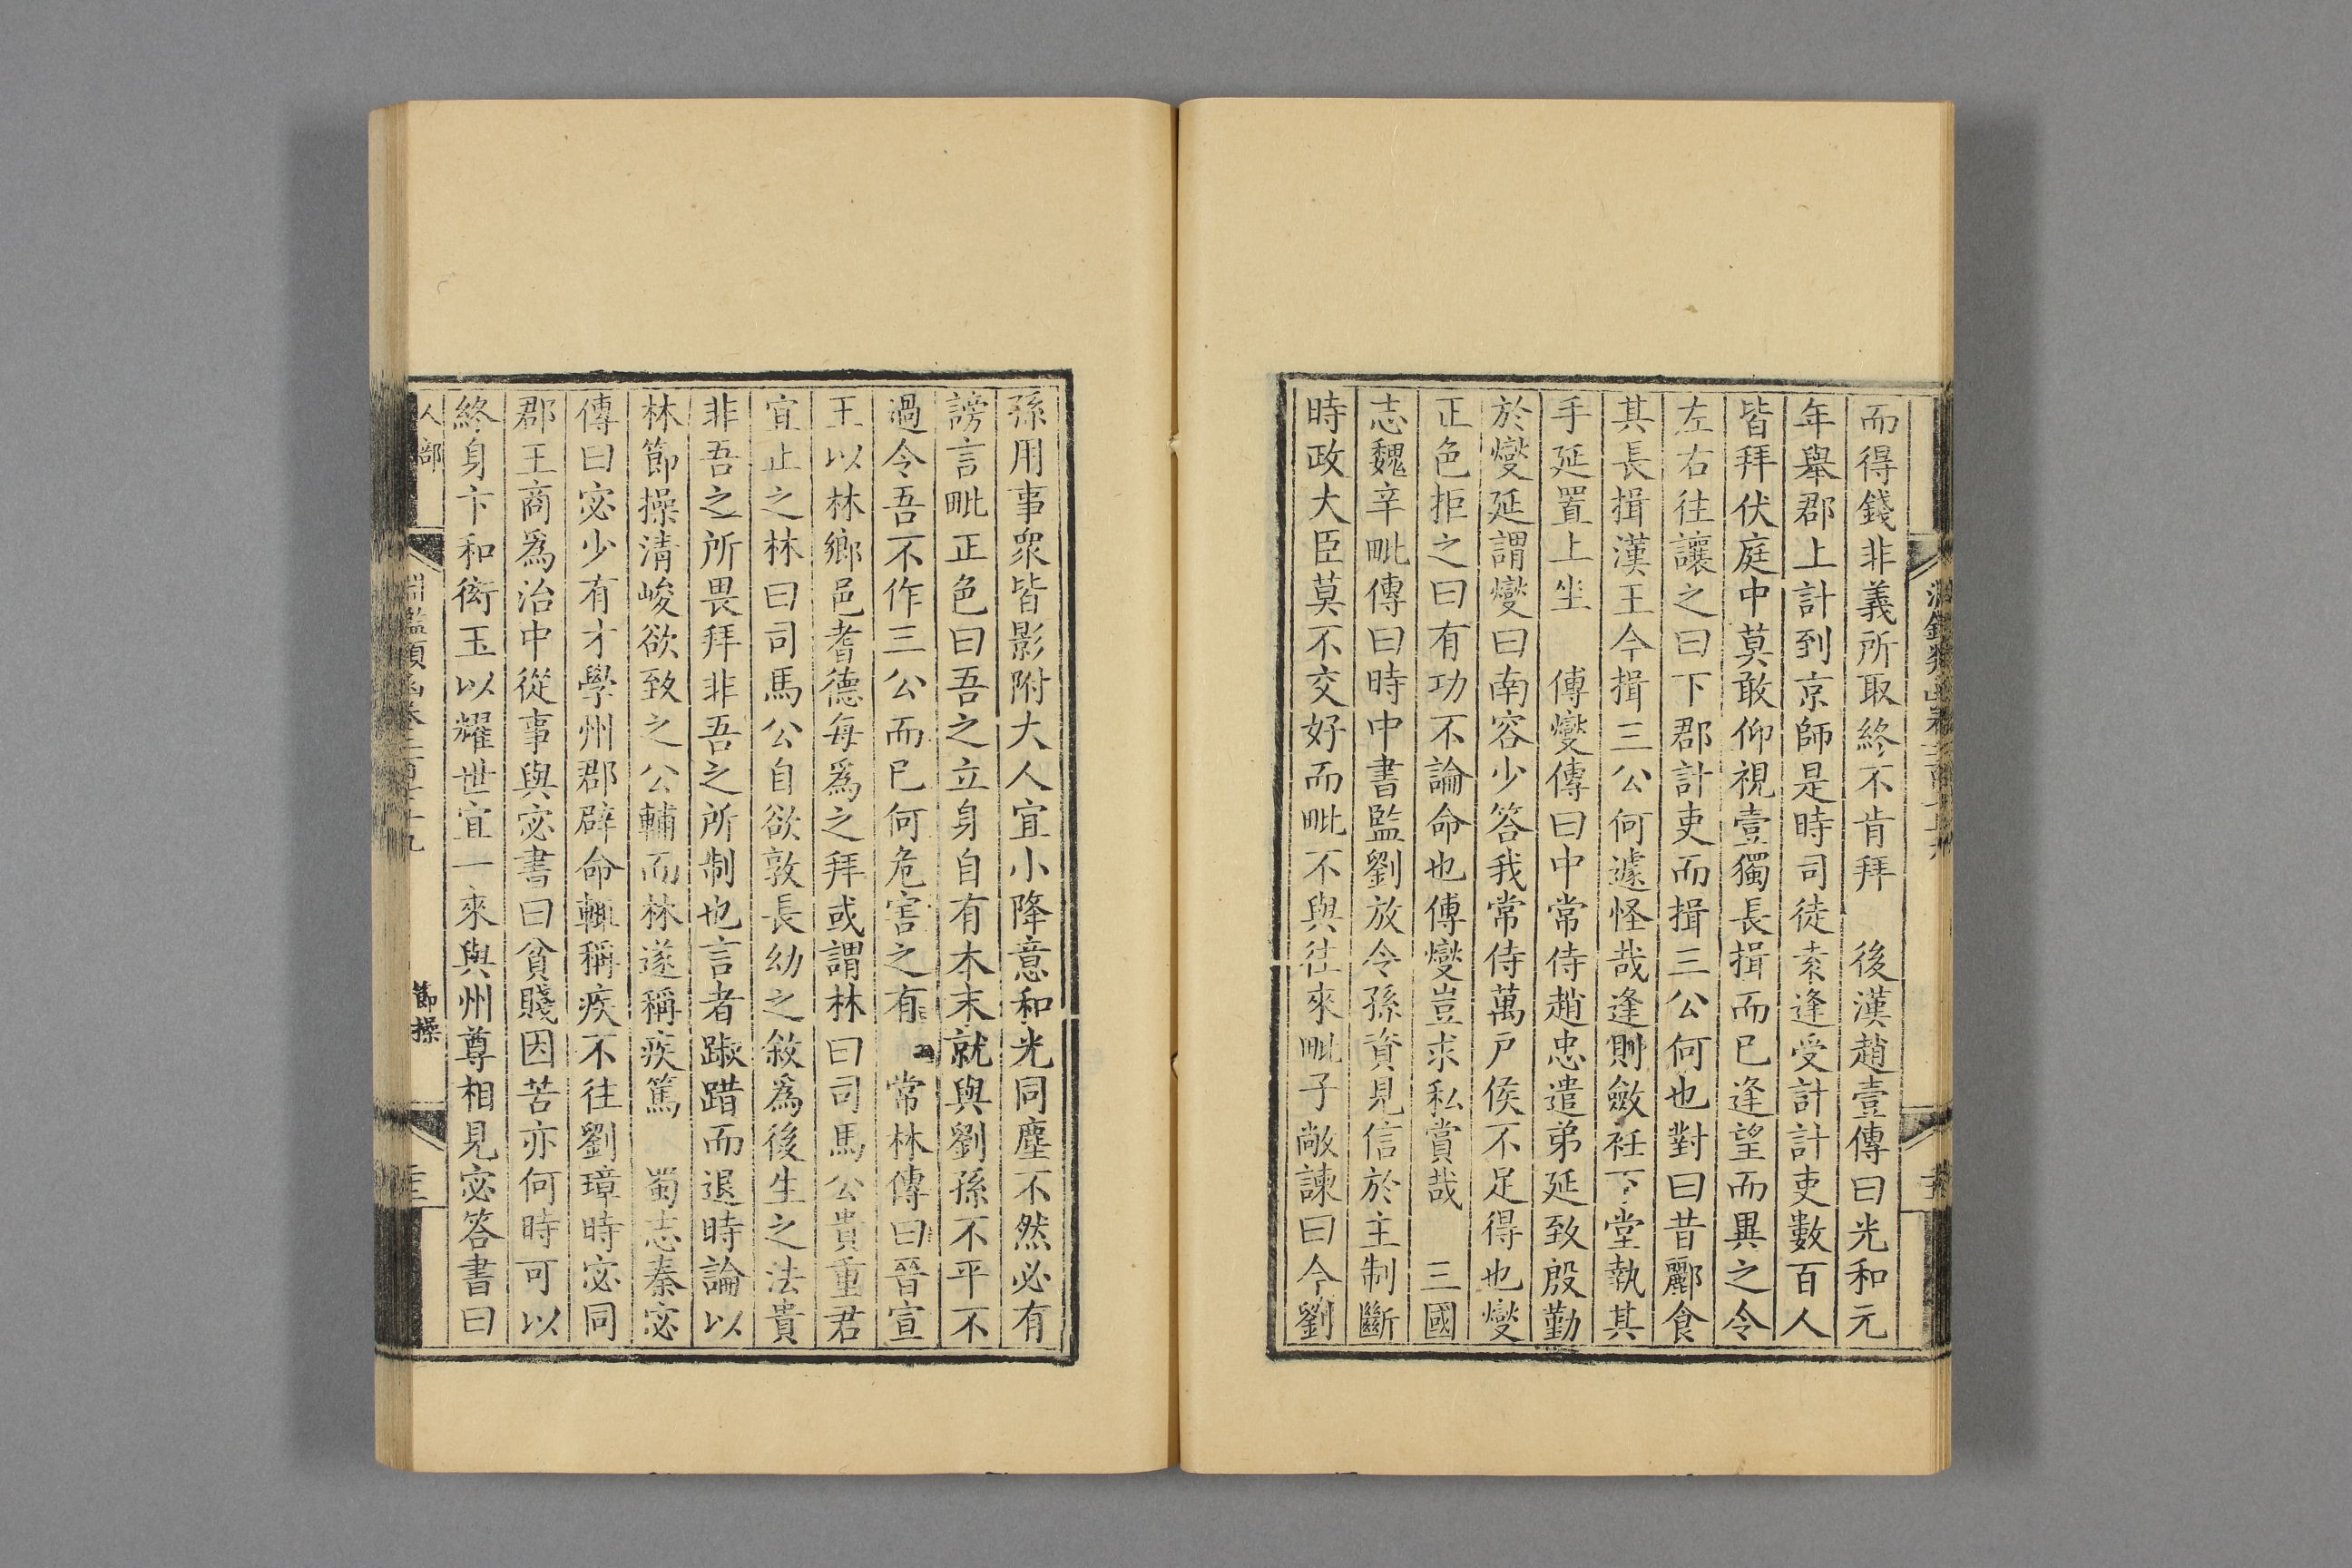 而得錢非義所取終不肯拜　後漢趙壹傳曰光和元
年舉郡上計到京師是時司徒袁逢受計計吏數百人
皆拜伏庭中莫敢仰視壹獨長揖而已逢望而異之令
左右往讓之曰下郡計吏而揖三公何也對曰昔酈食
其長揖漢王今揖三公何遽怪哉逢則斂衽下堂執其
手延置上坐　傅燮傳曰中常侍趙忠遣弟延致殷勤
於燮延謂燮曰南容少答我常侍萬戸侯不足得也燮
正色拒之曰有功不論命也傅燮豈求私賞哉　三國
志魏辛毗傳曰時中書監劉放令孫資見信於主制斷
時政大臣莫不交好而毗不與往來毗子敞諫曰今劉
孫用事衆皆影附大人宜小降意和光同塵不然必有
謗言毗正色曰吾之立身自有本末就與劉孫不平不
過令吾不作三公而已何危害之有　常林傳曰晉宣
王以林鄉邑耆德每爲之拜或謂林曰司馬公貴重君
宜止之林曰司馬公自欲敦長幼之敘爲後生之法貴
非吾之所畏拜非吾之所制也言者踧踖而退時論以
林節操清峻欲致之公輔而林遂稱疾篤　蜀志秦宓
傳曰宓少有才學州郡辟命輒稱疾不往劉璋時宓同
郡王商爲治中從事與宓書曰貧賤因苦亦何時可以
終身卞和衒玉以耀世宜一來與州尊相見宓答書曰
人部
節操